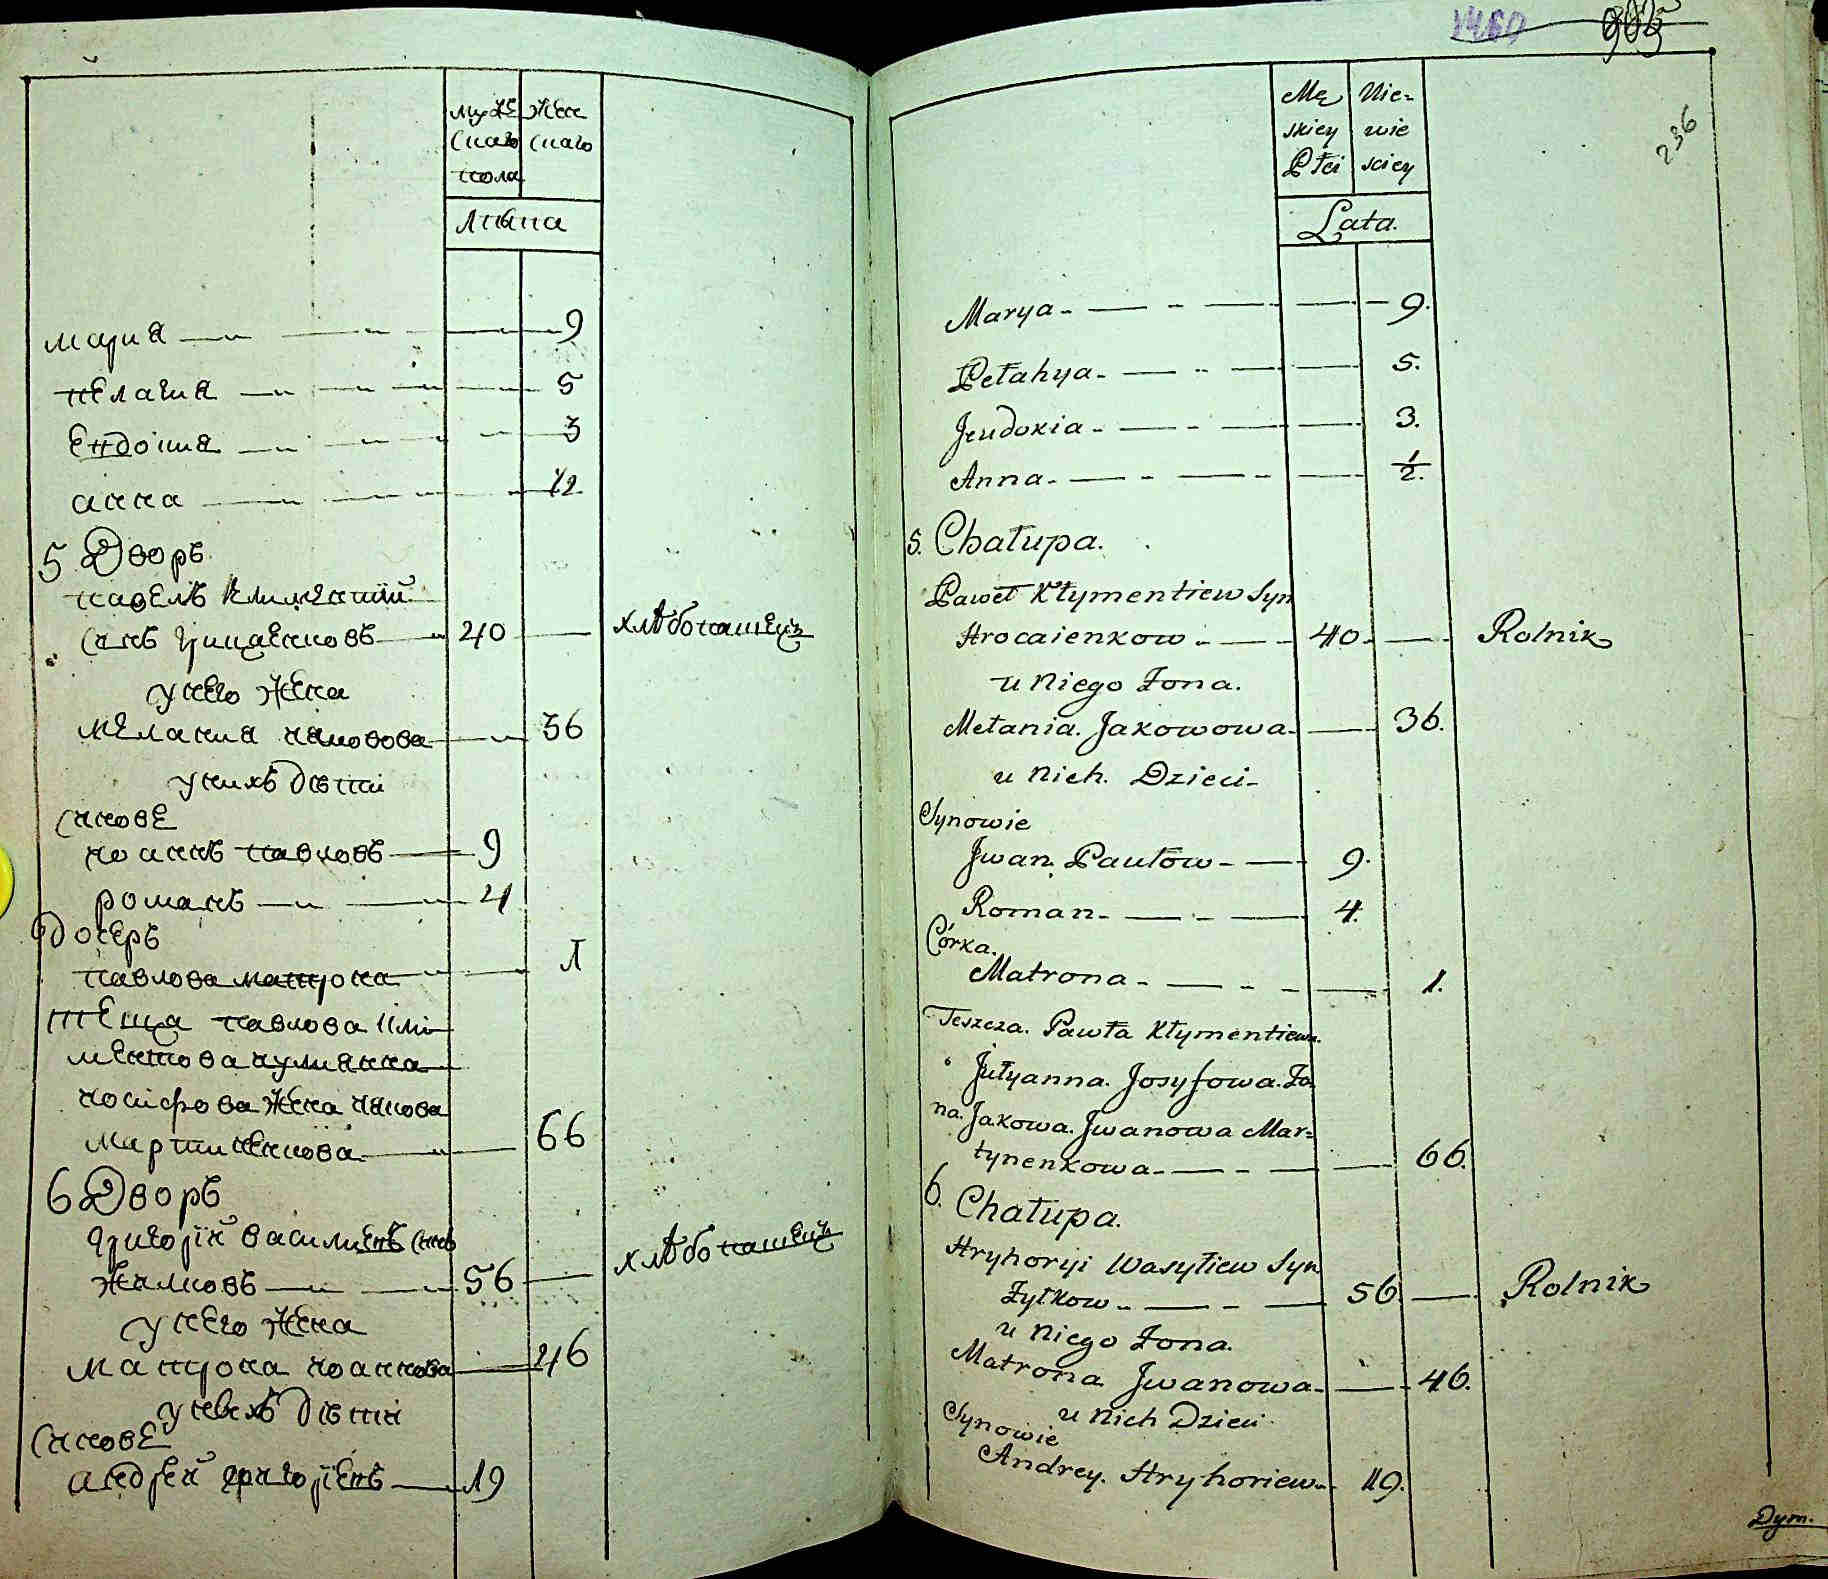 мужε жεн
скаго скаго
пола
Лѣта
мариа 9
пелагиа 5
Евдокиа 3
анна 1/2
5 Дворъ
павелъ климентий
сынъ грицаенковъ 40 хлѣбопашецъ
у него жена
мелания іаковова 36
у нихъ дѣти
сынове
иоаннъ павловъ 9
романъ 4
дочерь
павлова матрона 1
теща павлова кли
ментова иулианна
иосифова жена іакова
мартиненкова 66
6 Дворъ
григорій василиевъ сынъ
жилковъ 56 хлѣбопашецъ
у него жена
матрона иоаннова 46
у невехъ дѣти
сынове
андрей григоріевъ 19
1460 903
236
Mę Nie-
skiey wie
Płci sciey
Lata.
Marya 9.
Pełahya 5.
Jeudokia 3.
Anna 1/2.
5. Chałupa.
Paweł Kłymentiew Syn
Hrocaienkow 40. Rolnik
u Niego Żona.
Mełania. Jakowowa 36.
u Nich. Dzieci
Synowie
Jwan. Paułow 9.
Roman 4.
Córka.
Matrona 1.
Teszcza. Pawła Kłymentiewa.
Jułyanna. Josyfowa. Żo
na. Jakowa. Jwanowa Mar=
tynenkowa 66.
6. Chałupa.
Hryhoryi Wasyliew Syn
Żyłkow 56 Rolnik
u Niego Żona.
Matrona Jwanowa 46.
u Nich Dzieci
Synowie
Andrey. Hryhoriew 19.
Dym.